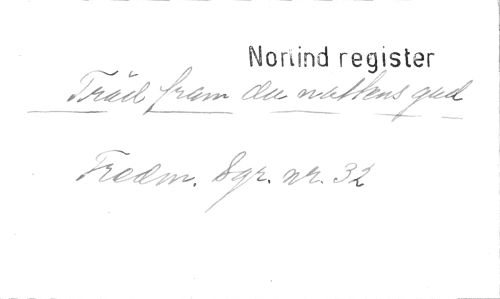 Norlind register
Träd fram du nattens gud
Fredm. Sgr. nr. 32